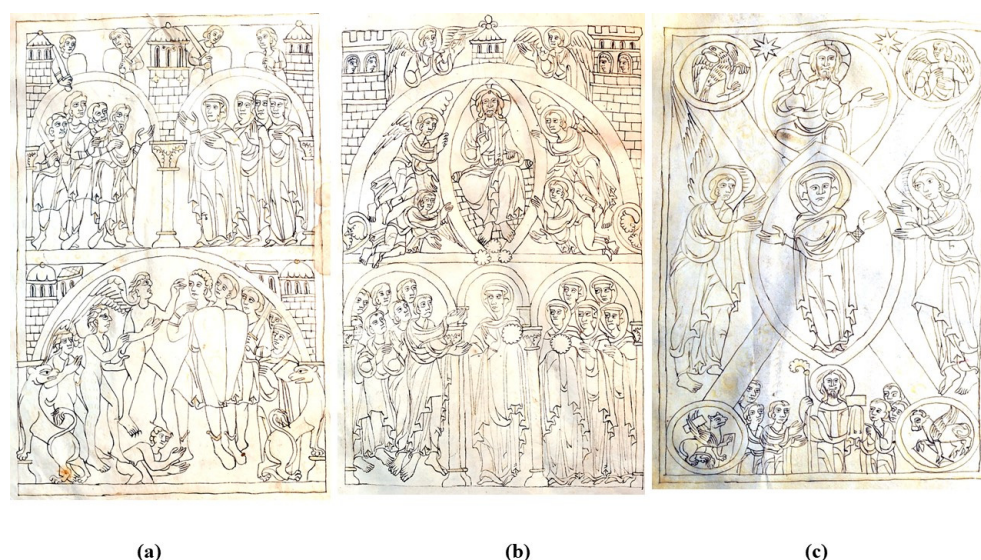 (a) (b) (c)